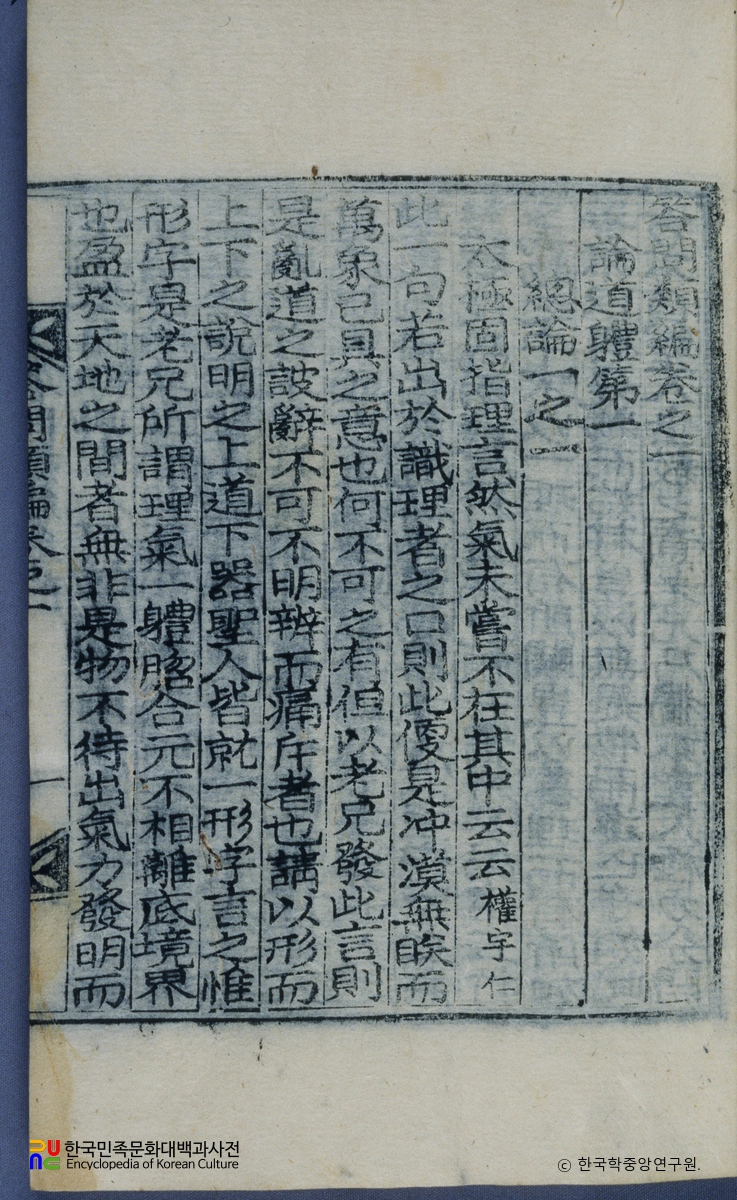 答問類編卷之一
論道體第一
總論一之一
太極固指理言然氣未嘗不在其中云云 權宇仁
此一句若出於識理者之口則此便是冲漠無眹而
萬象已具之意也何不可之有但以老兄發此言則
是亂道之詖辭不可不明辨而痛斥者也請以形而
上下之說明之上道下器聖人皆就一形字言之惟
形字是老兄所謂理氣一軆脗合元不相離底境界
也盈於天地之間者無非是物不待出氣力發明而
答問類編卷之一
一
한국민족문화대백과사전
Encyclopedia of Korean Culture
© 한국학중앙연구원.